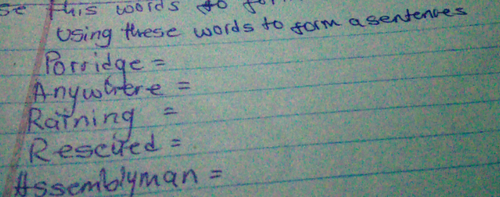 se this words to for
Using these words to form a sentences
Porridge =
Anywhere =
Raining =
Rescued =
Assemblyman =